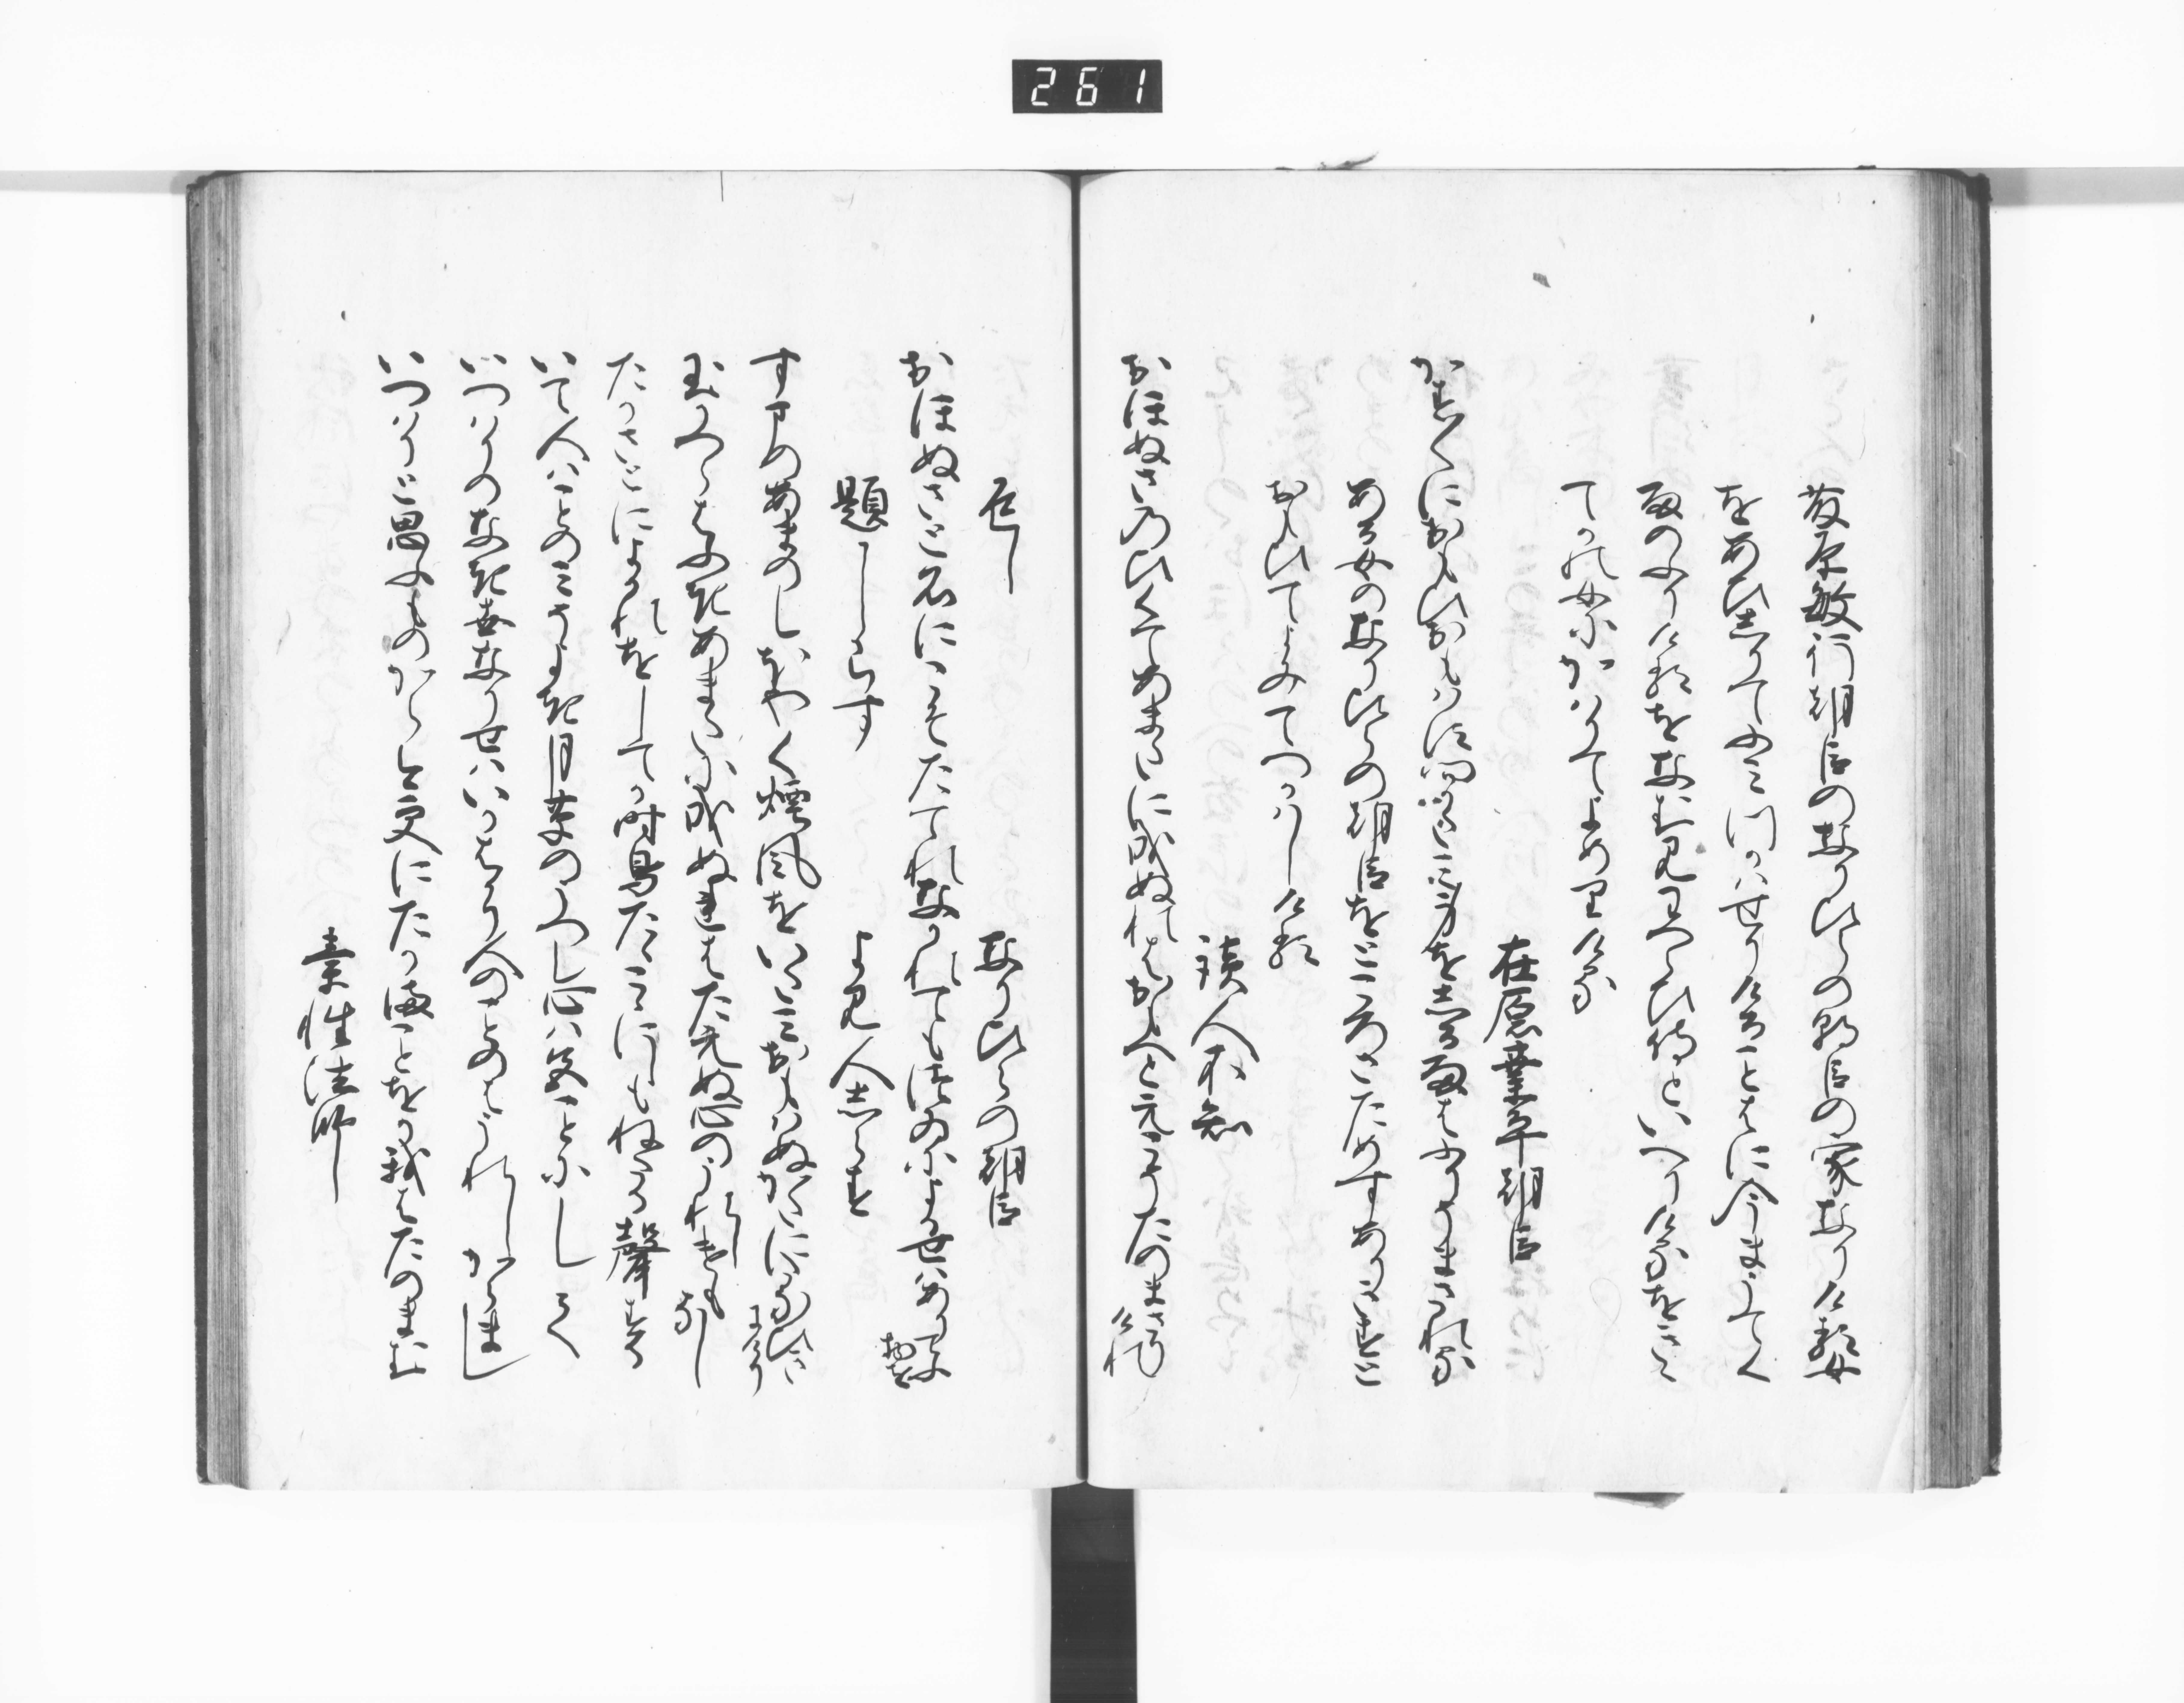 261
藤原敏行朝臣のなりひらの朝臣の家なりける女
をあひしりてふみつかはせりけることはに今まうてく
雨のふりけるをなむ見わつらひ侍といへりけるをきゝ
てかの女にかはりてよめりける
在原業平朝臣
かす〱におもひおもはす問かたみ身をしる雨はふりそまされる
ある女のなりひらの朝臣をところさためすありきすと
おもひてよみてつかはしける
読人不知
おほぬさのひくてあまたに成ぬれはおもへとえこそたのまさりけれ
返し　なりひらの朝臣
おほぬさと名にこそたてれなかれてもつゐによるせはありてふ物を
題しらす　よみ人しらす
すまのあまのしほやく煙風をいたみおもはぬかたにたなひきにけり
玉かつらはふ木あまたに成ぬれはたえぬ心のうれしけもなし
たかさとによかれをしてか時鳥たゝこゝにしもねたる声する
いて人はことのみそよき月草のうつし心は色ことにして
いつはりのなき世なりせはいかはかり人のことのはうれしからまし
いつはりと思ふものから今更にたかまことをか我はたのまむ
素性法師